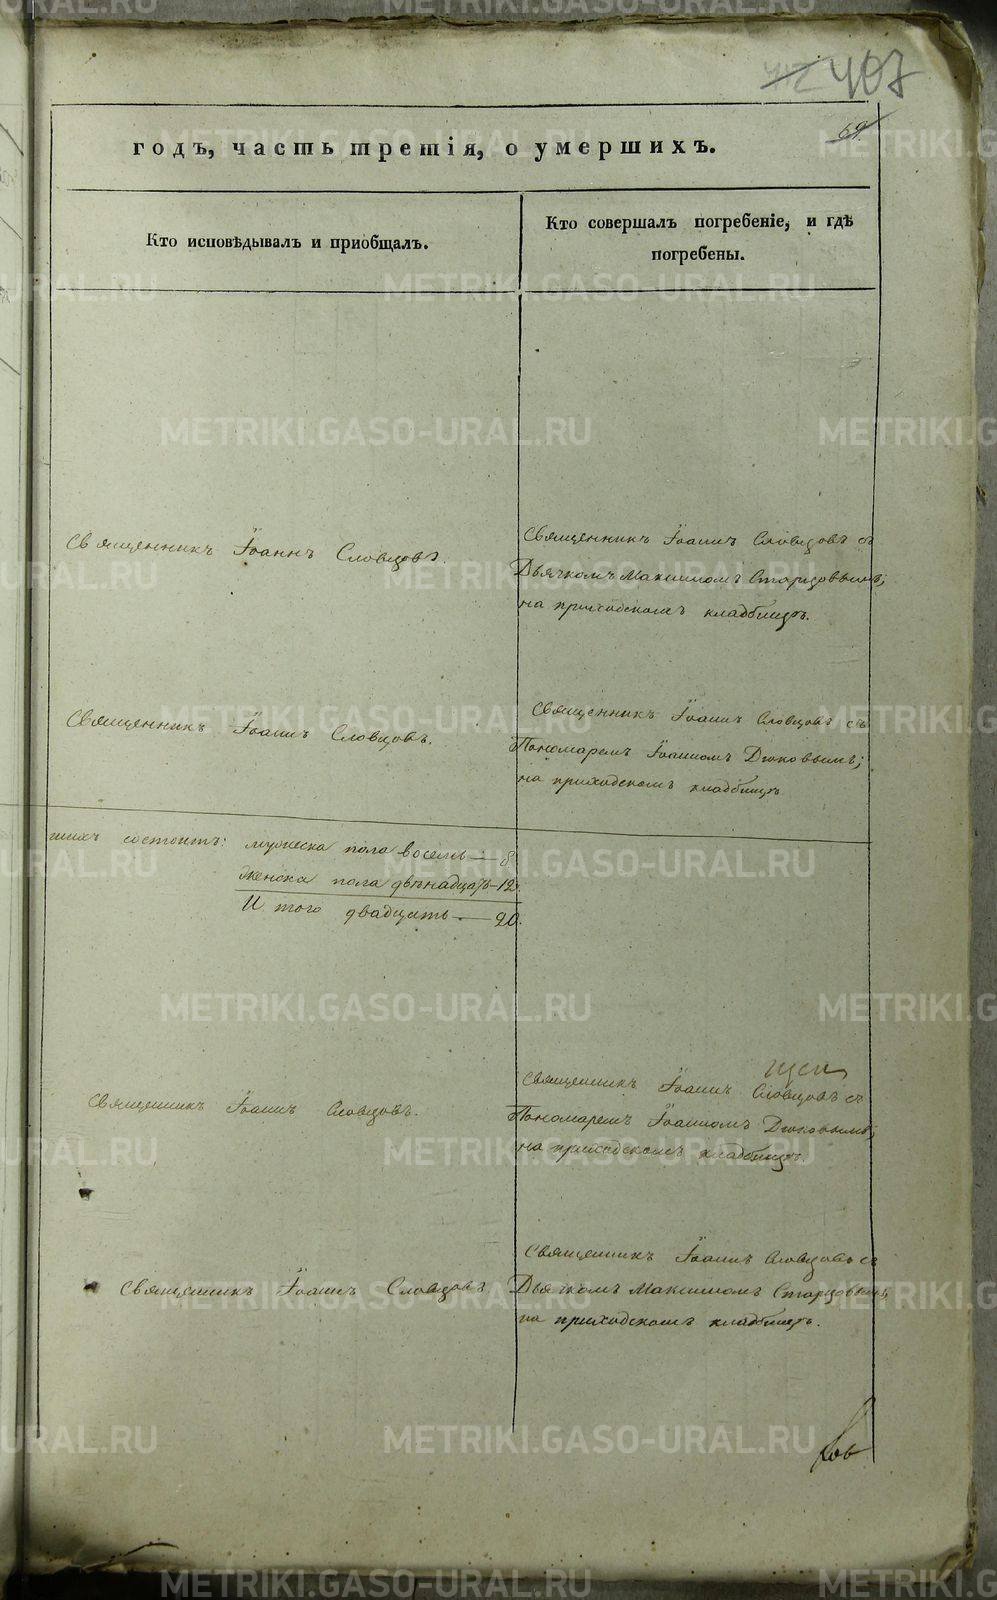 412 407
69
годъ, часть третія, о умершихъ.
Кто исповѣдывалъ и пріобщалъ.
Кто совершалъ погребеніе, и гдѣ
погребены.
Священникъ Іоаннъ Словцовъ.
Священникъ Іоаннъ Словцовъ съ
Дьячкомъ Максимомъ Старцовымъ;
на приходскомъ кладбищѣ.
Священникъ Іоаннъ Словцовъ.
Священникъ Іоаннъ Словцовъ съ
Пономаремъ Іоанномъ Дюковымъ;
на приходскомъ кладбищѣ
шихъ состоитъ: мужеска пола восемь — 8
Женска пола двѣнадцать — 12.
И того двадцать. — 20.
Священникъ Іоаннъ Словцовъ.
Священникъ Іоаннъ Словцовъ съ
Пономаремъ Іоанномъ Дюковымъ;
на приходскомъ кладбищѣ.
Священникъ Іоаннъ Словцовъ
Священникъ Іоаннъ Словцовъ съ
Дьячкомъ Максимомъ Старцовымъ
на приходскомъ кладбищѣ.
METRIKI.GASO-URAL.RU